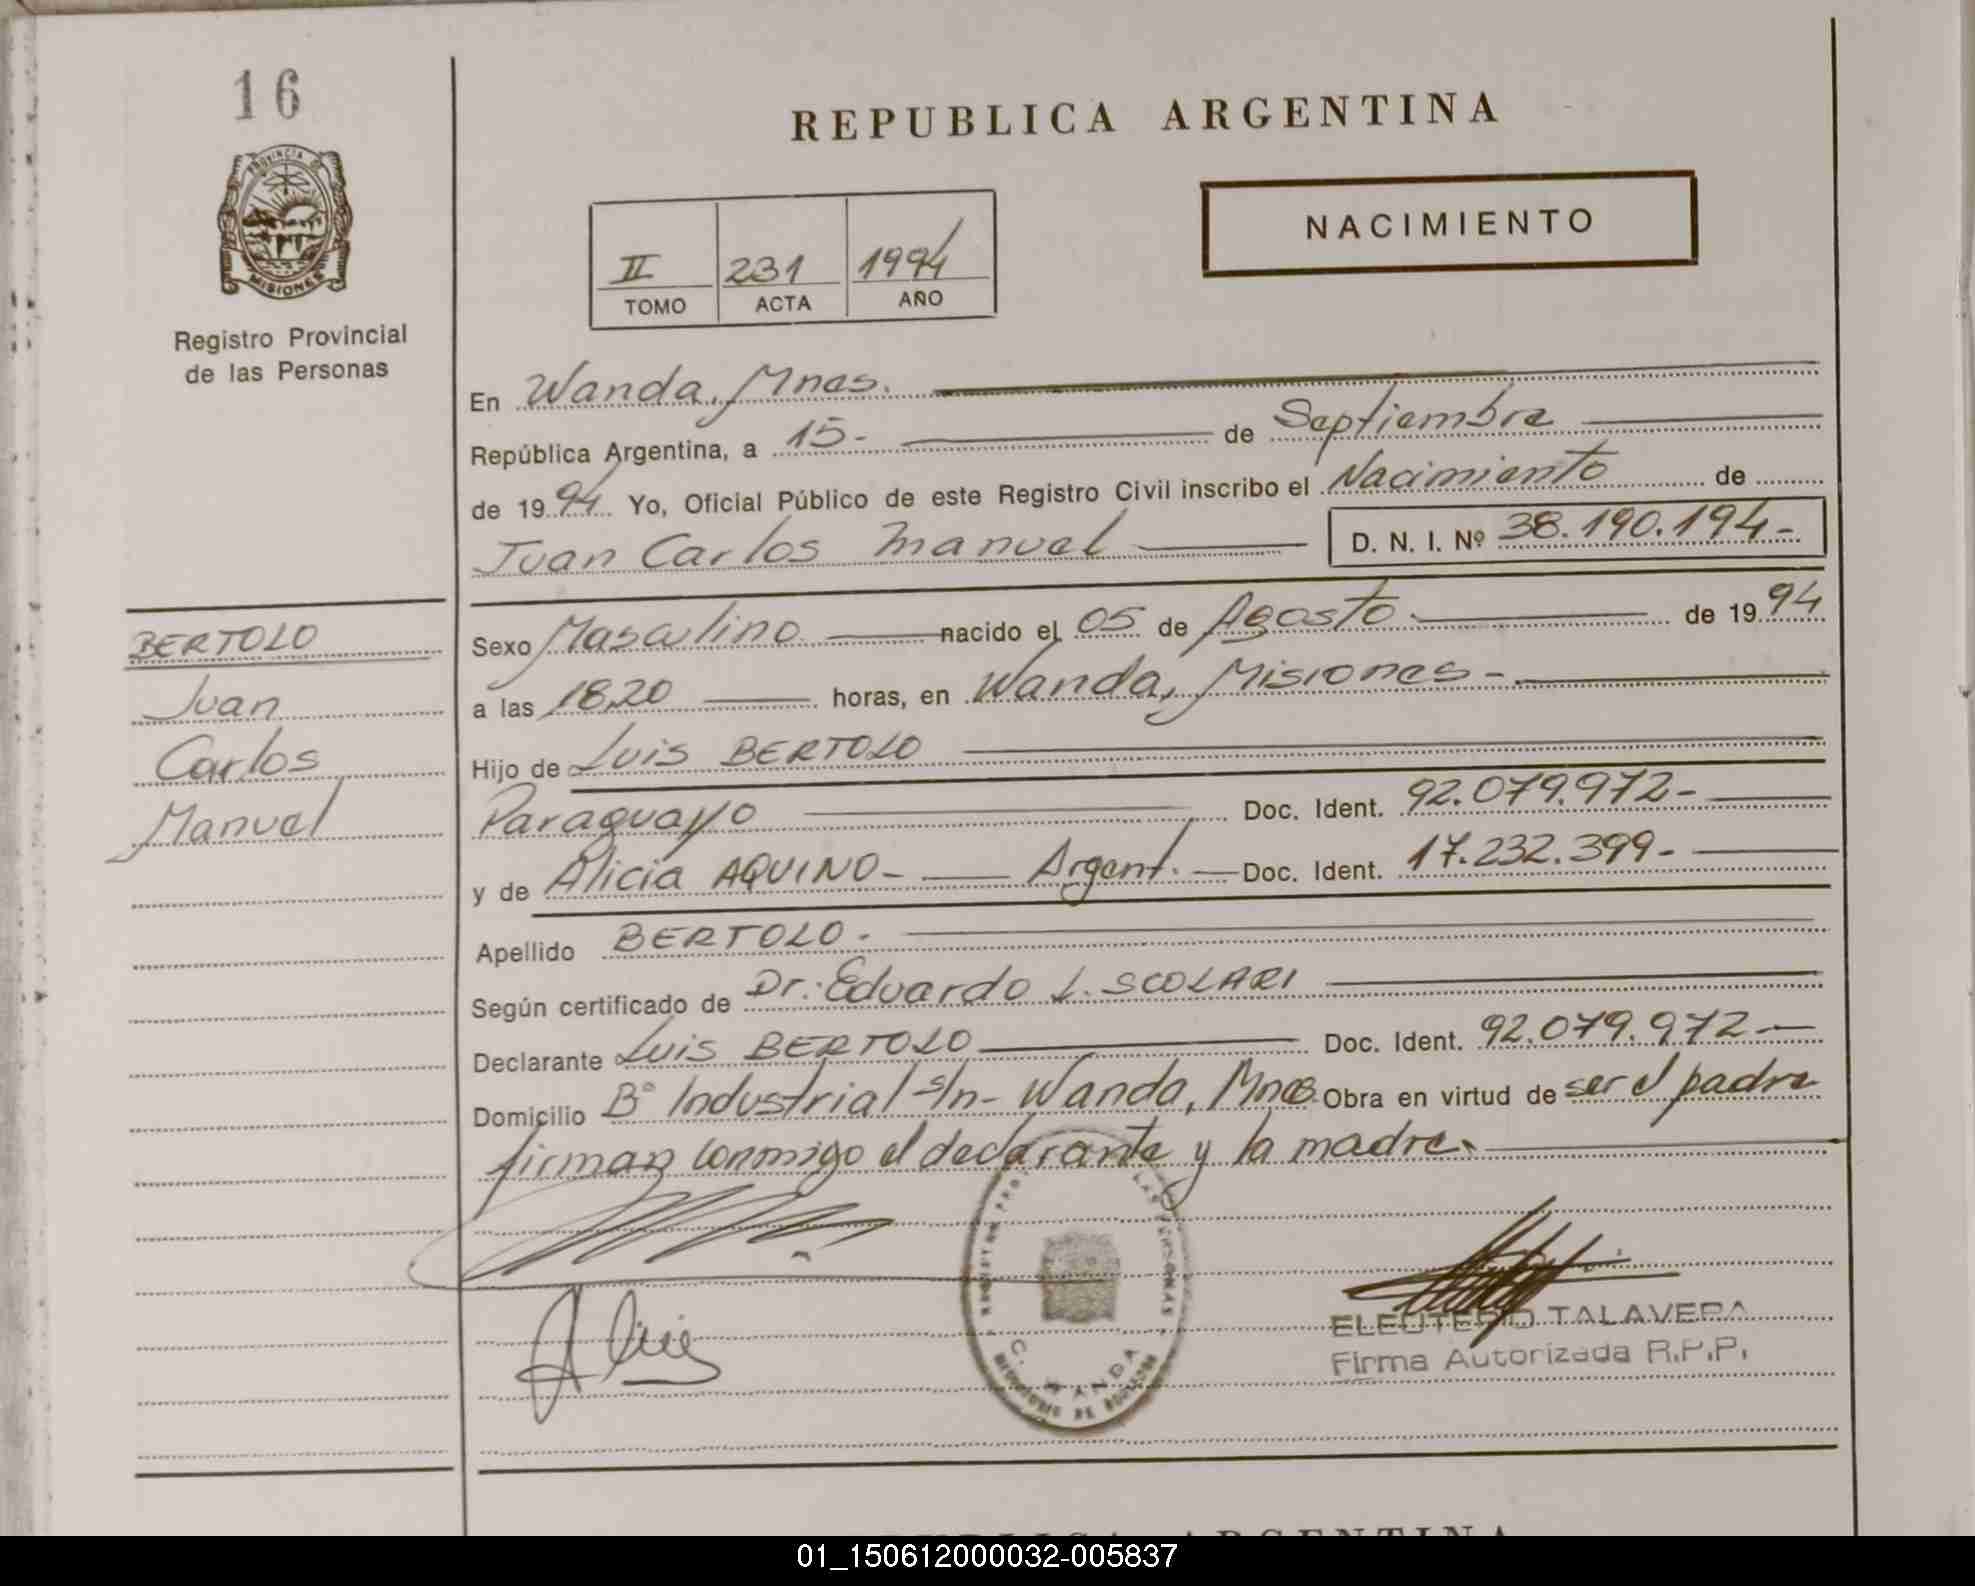 16
PROVINCIA DE
MISIONES
Registro Provincial
de las Personas
BERTOLO
Juan
Carlos
Manuel
REPUBLICA ARGENTINA
NACIMIENTO
II 231 1994
TOMO ACTA AÑO
En Wanda, Mnes.
República Argentina, a 15.- de Septiembre
de 1994 Yo, Oficial Público de este Registro Civil inscribo el Nacimiento de
Juan Carlos Manuel D. N. I. Nº 38.190.194-
Sexo Masculino nacido el 05 de Agosto de 1994
a las 18,20 horas, en Wanda, Misiones-
Hijo de Luis BERTOLO
Paraguayo Doc. Ident. 92.079.972-
y de Alicia AQUINO- Argent. Doc. Ident. 17.232.399-
Apellido BERTOLO.
Según certificado de Dr. Eduardo L. SCOLARI
Declarante Luis BERTOLO Doc. Ident. 92.079.972-
Domicilio Bº Industrial s/n- Wanda, Mnes Obra en virtud de ser el padre
firman conmigo el declarante y la madre.
LAS PERSONAS
WANDA
ELEUTERIO TALAVERA
Firma Autorizada R.P.P.
REPUBLICA ARGENTINA
01_150612000032-005837